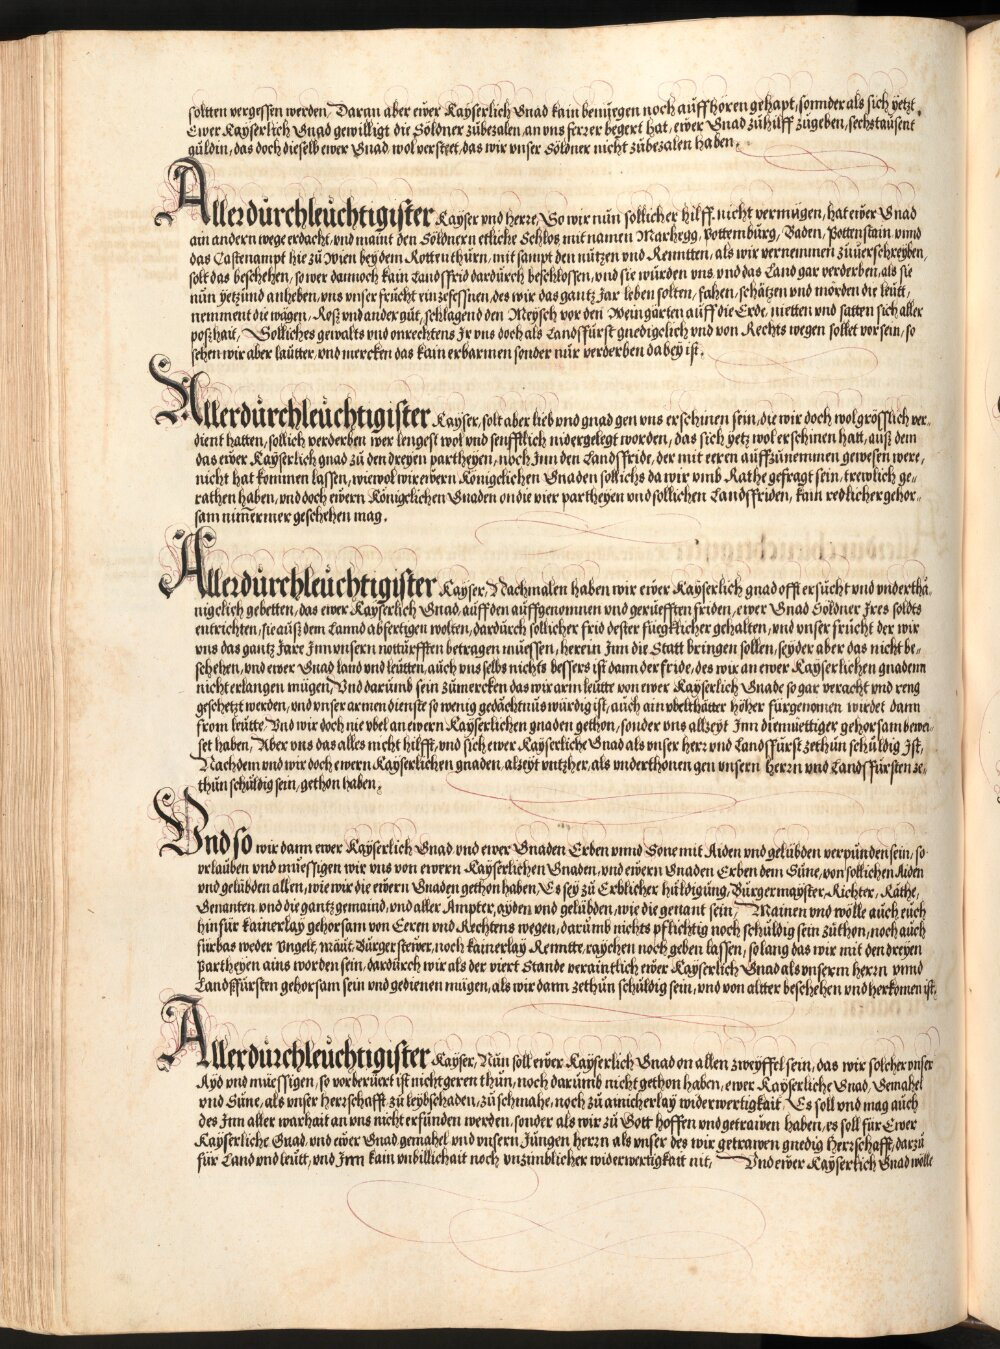 soltten vergessen werden, Daran aber ewer Kayserlich Gnad kain benüegen noch auffhören gehapt, sonnder als sich yetzt
Ewer Kayserlich Gnad gewilligt die Söldner zübezalen, an vns ferrer begert hat, ewer Gnad zühilff zugeben, sechstausent
güldin, das doch dieselb ewer Gnad wol versteet, das wir vnser Söldner nicht zübezalen haben.
Allerdürchleüchtigister Kayser vnd herre, So wir nün sollicher hilff nicht vermügen, hat ewer Gnad
ain andern wege erdacht, vnd maint den Söldnern etliche Schlos mit namen Marhegg, Pottemburg, Baden, Pottenstain vnnd
das Castenampt hie zü Wien bey dem Rottenthürn, mit sampt den nützen vnd Renntten, als wir vernemmen züuerschreyben,
solt das beschehen, so wer dannoch kain Landsfrid dardürch beschlossen, vnd sie würden vns vnd das Land gar verderben, als sie
nün yetzünd anheben, vns vnser frücht einzefessnen, des wir das gantz Jar leben solten, fahen, schätzen vnd mörden die leütt,
nemment die wägen, Roß vnd ander güt, schlagend den Meysch vor den Weingärten auff die Erde, nietten vnd satten sich aller
poßhait, Solliches gewalts vnd onrechtens Ir vns doch als Landsfürst gnedigelich vnd von Rechts wegen sollet vor sein, so
sehen wir aber laütter, vnd mercken das kain erbarmen sonder nür verderben dabey ist.
Allerdürchleüchtigister Kayser, solt aber lieb vnd gnad gen vns erschinen sein, die wir doch wol grösslich ver-
dient hatten, sollich verderben wer lengest wol vnd senfftlich nidergelegt worden, das sich yetz wol erschinen hatt, auß dem
das ewer Kayserlich gnad zü den dreyen partheyen, noch Inn den Landsfride, der mit eeren auffzünemmen gewesen were,
nicht hat kommen lassen, wiewol wir ewern Königelichen Gnaden sollichs da wir vmb Rathe gefragt sein, trewlich ge-
rathen haben, vnd doch ewern Königelichen Gnaden on die vier partheyen vnd sollichen Landsfriden, kain redlicher gehor-
sam nimermer geschehen mag.
Allerdürchleüchtigister Kayser, Nachmalen haben wir ewer Kayserlich gnad offt ersücht vnd vnderthä-
nigelich gebetten, das ewer Kayserlich Gnad, auff den auffgenomnen vnd geruefften friden, ewer Gnad Söldner Ires solds
entrichten, sie auß dem Lannd abfertigen wolten, dardürch sollicher frid dester füegklicher gehalten, vnd vnser frücht der wir
vns das gantz Jare Inn vnsern notturfften betragen müessen, herein Inn die Statt bringen sollen, seyder aber das nicht be-
schehen, vnd ewer Gnad land vnd leütten, auch vns selbs nichts bessers ist dann der fride, des wir an ewer Kayserlichen gnadenn
nicht erlangen mügen, Vnd darümb sein zümercken das wir arm leütte von ewer Kayserlich Gnade so gar veracht vnd reng
geschetzt werden, vnd vnser armen dienste so wenig gedächtnüs würdig ist, auch ain vbelthätter höher fürgenomen wirdet dann
from leütte, Vnd wir doch nie vbel an ewern Kayserlichen gnaden gethon, sonder vns allzeyt Inn diemüettiger gehorsam bewei-
set haben, Aber vns das alles nicht hilfft, vnd sich ewer Kayserliche Gnad als vnser herr vnd Landsfürst zethün schüldig Ist,
Nachdem vnd wir doch ewern Kayserlichen gnaden, alzeyt vntzher, als vnderthonen gen vnsern herrn vnd Landsfürsten ze-
thün schüldig sein, gethon haben.
Vnd so wir dann ewer Kayserlich Gnad vnd ewer Gnaden Erben vnnd Sone mit Aiden vnd gelübden verpünden sein, so
vrlauben vnd müessigen wir vns von ewern Kayserlichen Gnaden, vnd ewern Gnaden Erben dem Süne, von sollichen Aiden
vnd gelübden allen, wie wir die ewern Gnaden gethon haben, Es sey zü Erblicher hüldigung, Bürgermayster, Richter, Räthe,
Genanten vnd die gantz gemaind, vnd aller Ampter, ayden vnd gelübden, wie die genant sein, Mainen vnd wölle auch euch
hinfür kainerlay gehorsam von Eeren vnd Rechtens wegen, darümb nichts pflichtig noch schüldig sein züthon, noch auch
fürbas weder Vngelt, maüt, Bürgersteiver, noch kainerlay Renntte, raychen noch geben lassen, solang das wir mit den dreyen
Partheyen ains worden sein, dardürch wir als der viert Stande veraintlich ewer Kayserlich Gnad als vnserm herrn vnnd
Landßfürsten gehorsam sein vnd gedienen mügen, als wir dann zethün schüldig sein, vnd von altter beschehen vnd herkomen ist.
Allerdürchleüchtigister Kayser, Nün soll ewer Kayserlich Gnad on allen zweyffel sein, das wir solcher vnser
Ayd vnd müessigen, so vorberüert ist nicht geren thün, noch darümb nicht gethon haben, ewer Kayserliche Gnad, Gemahel
vnd Süne, als vnser herrschafft zü leybschaden, zü schmahe, noch zü ainicherlay widerwertigkait, Es soll vnd mag auch
des Inn aller warhait an vns nicht erfünden werden, sonder als wir zü Gott hoffen vnd getrawen haben, es soll für Ewer
Kayserliche Gnad, vnd ewer Gnad gemahel vnd vnsern Jüngen herrn als vnser des wir getrawen gnedig herrschafft, darzü
für Land vnd leütt, vnd Inn kain vnbillichait noch vnzimblicher widerwertigkait nit, Vnd ewer Kayserlich Gnad wölle